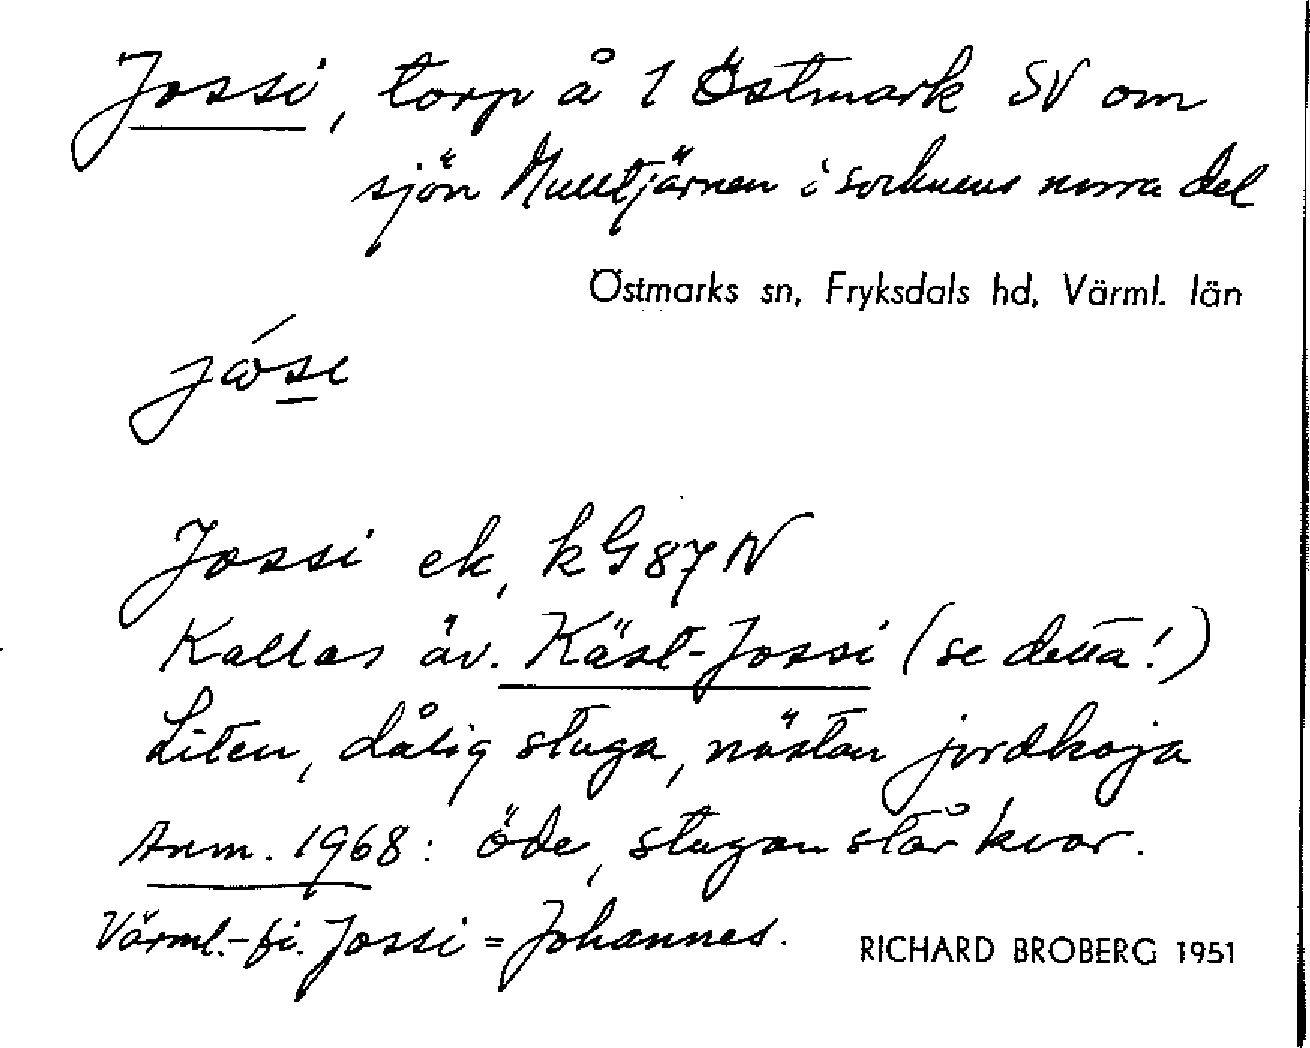 Jossi, torp å 1 Östmark SV om
sjön Mulltjärnen i socknens norra del
Östmarks sn, Fryksdals hd, Värml. län
Jossi ek, kG87N
Kallas äv. Käst-Jossi (se detta!)
Liten, dålig stuga, nästan jordkoja
Anm. 1968: öde, stugan står kvar.
Värml.-fi. Jossi = Johannes.
RICHARD BROBERG 1951